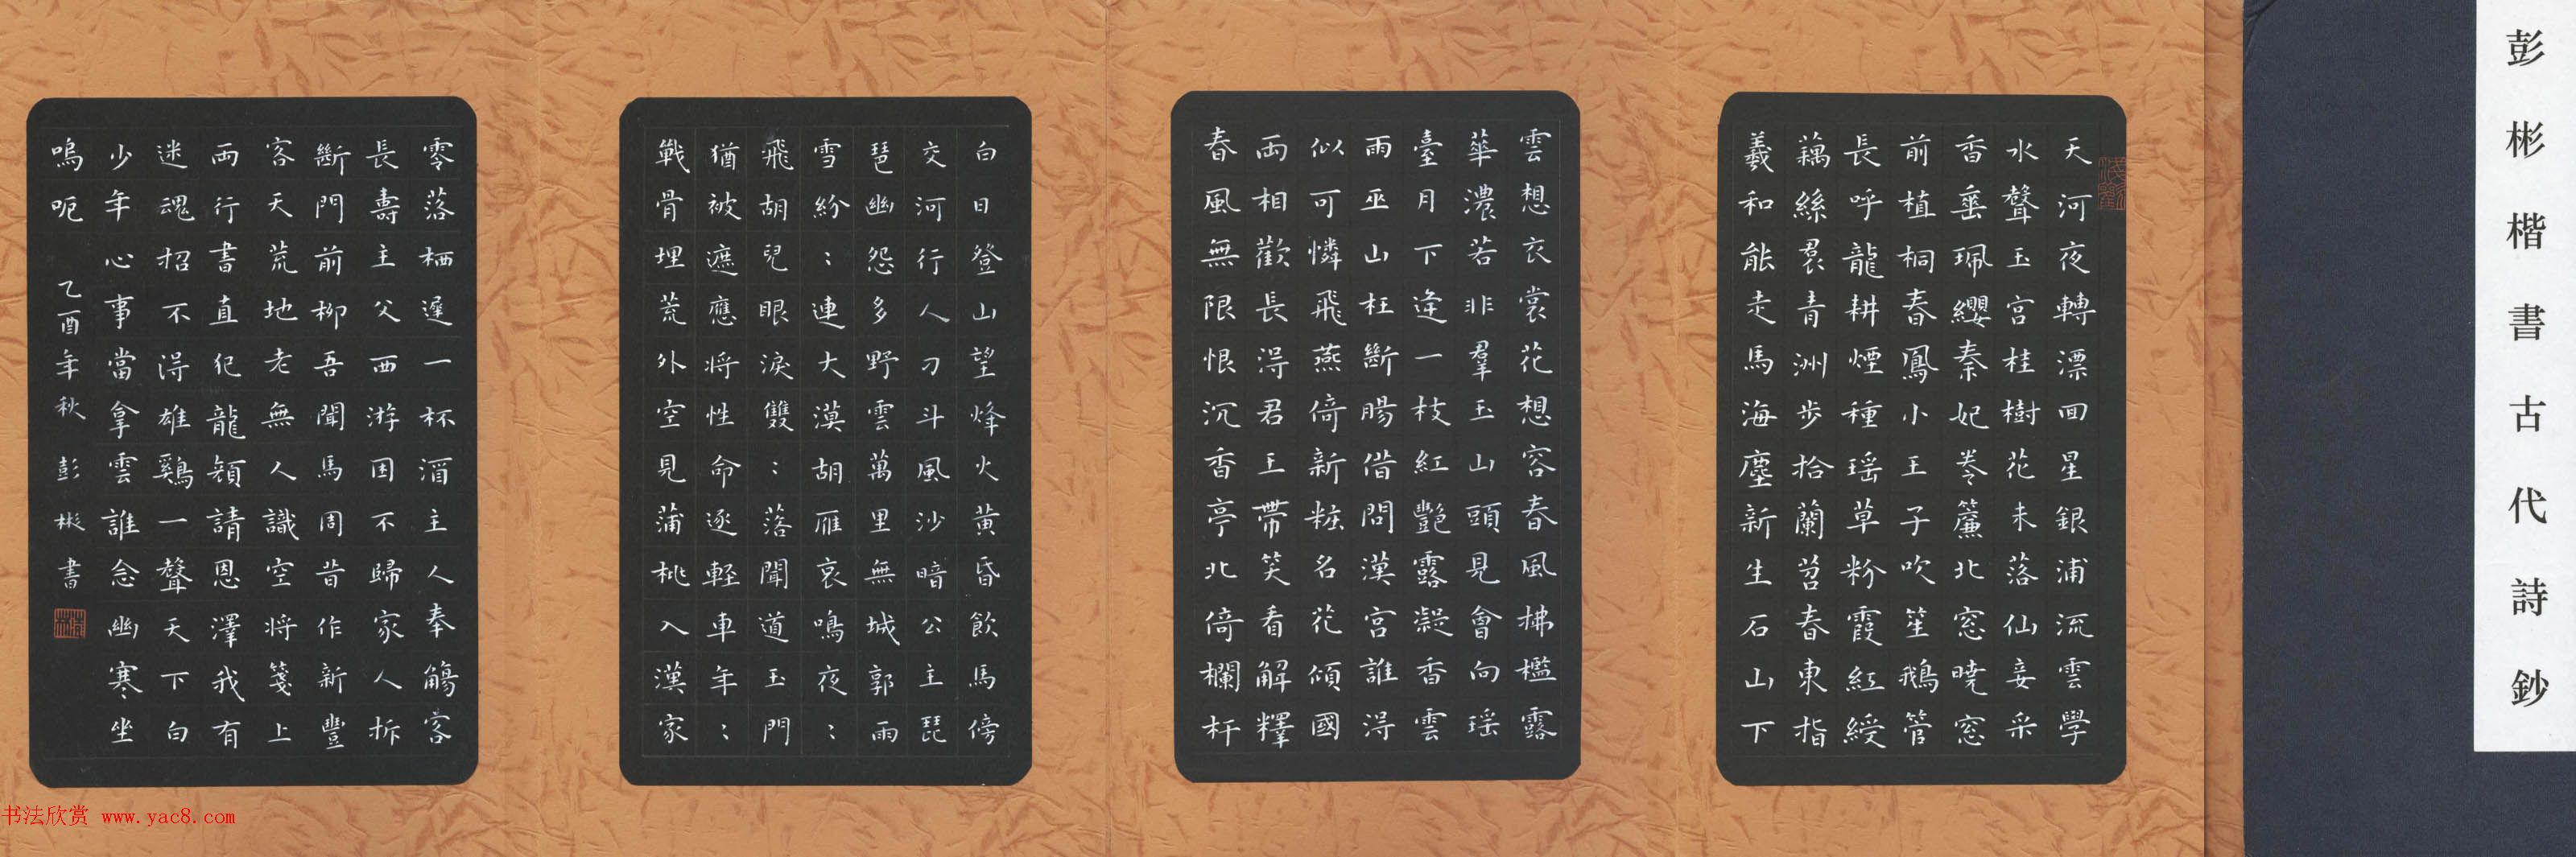 彭彬楷書古代詩鈔
天河夜轉漂回星銀浦流雲學
水聲玉宮桂樹花未落仙妾采
香垂珮纓秦妃卷簾北窓曉窓
前植桐春鳳小王子吹笙鵝管
長呼龍耕煙種瑶草粉霞紅綬
藕絲裙青洲步拾蘭苕春東指
羲和能走馬海塵新生石山下
雲想衣裳花想容春風拂檻露
華濃若非羣玉山頭見會向瑶
臺月下逢一枝紅艷露凝香雲
雨巫山枉斷腸借問漢宮誰得
似可憐飛燕倚新粧名花傾國
兩相歡長得君王帶笑看解釋
春風無限恨沉香亭北倚欄杆
白日登山望烽火黃昏飲馬傍
交河行人刁斗風沙暗公主琵
琶幽怨多野雲萬里無城郭雨
雪紛：連大漠胡雁哀鳴夜：
飛胡兒眼淚雙：落聞道玉門
猶被遮應將性命逐輕車年：
戰骨埋荒外空見蒲桃入漢家
零落栖遲一杯酒主人奉觴客
長壽主父西游困不歸家人折
斷門前柳吾聞馬周昔作新豐
客天荒地老無人識空將箋上
兩行書直犯龍顏請恩澤我有
迷魂招不得雄鷄一聲天下白
少年心事當拿雲誰念幽寒坐
嗚呃 乙酉年秋 彭彬書
书法欣赏 www.yac8.com